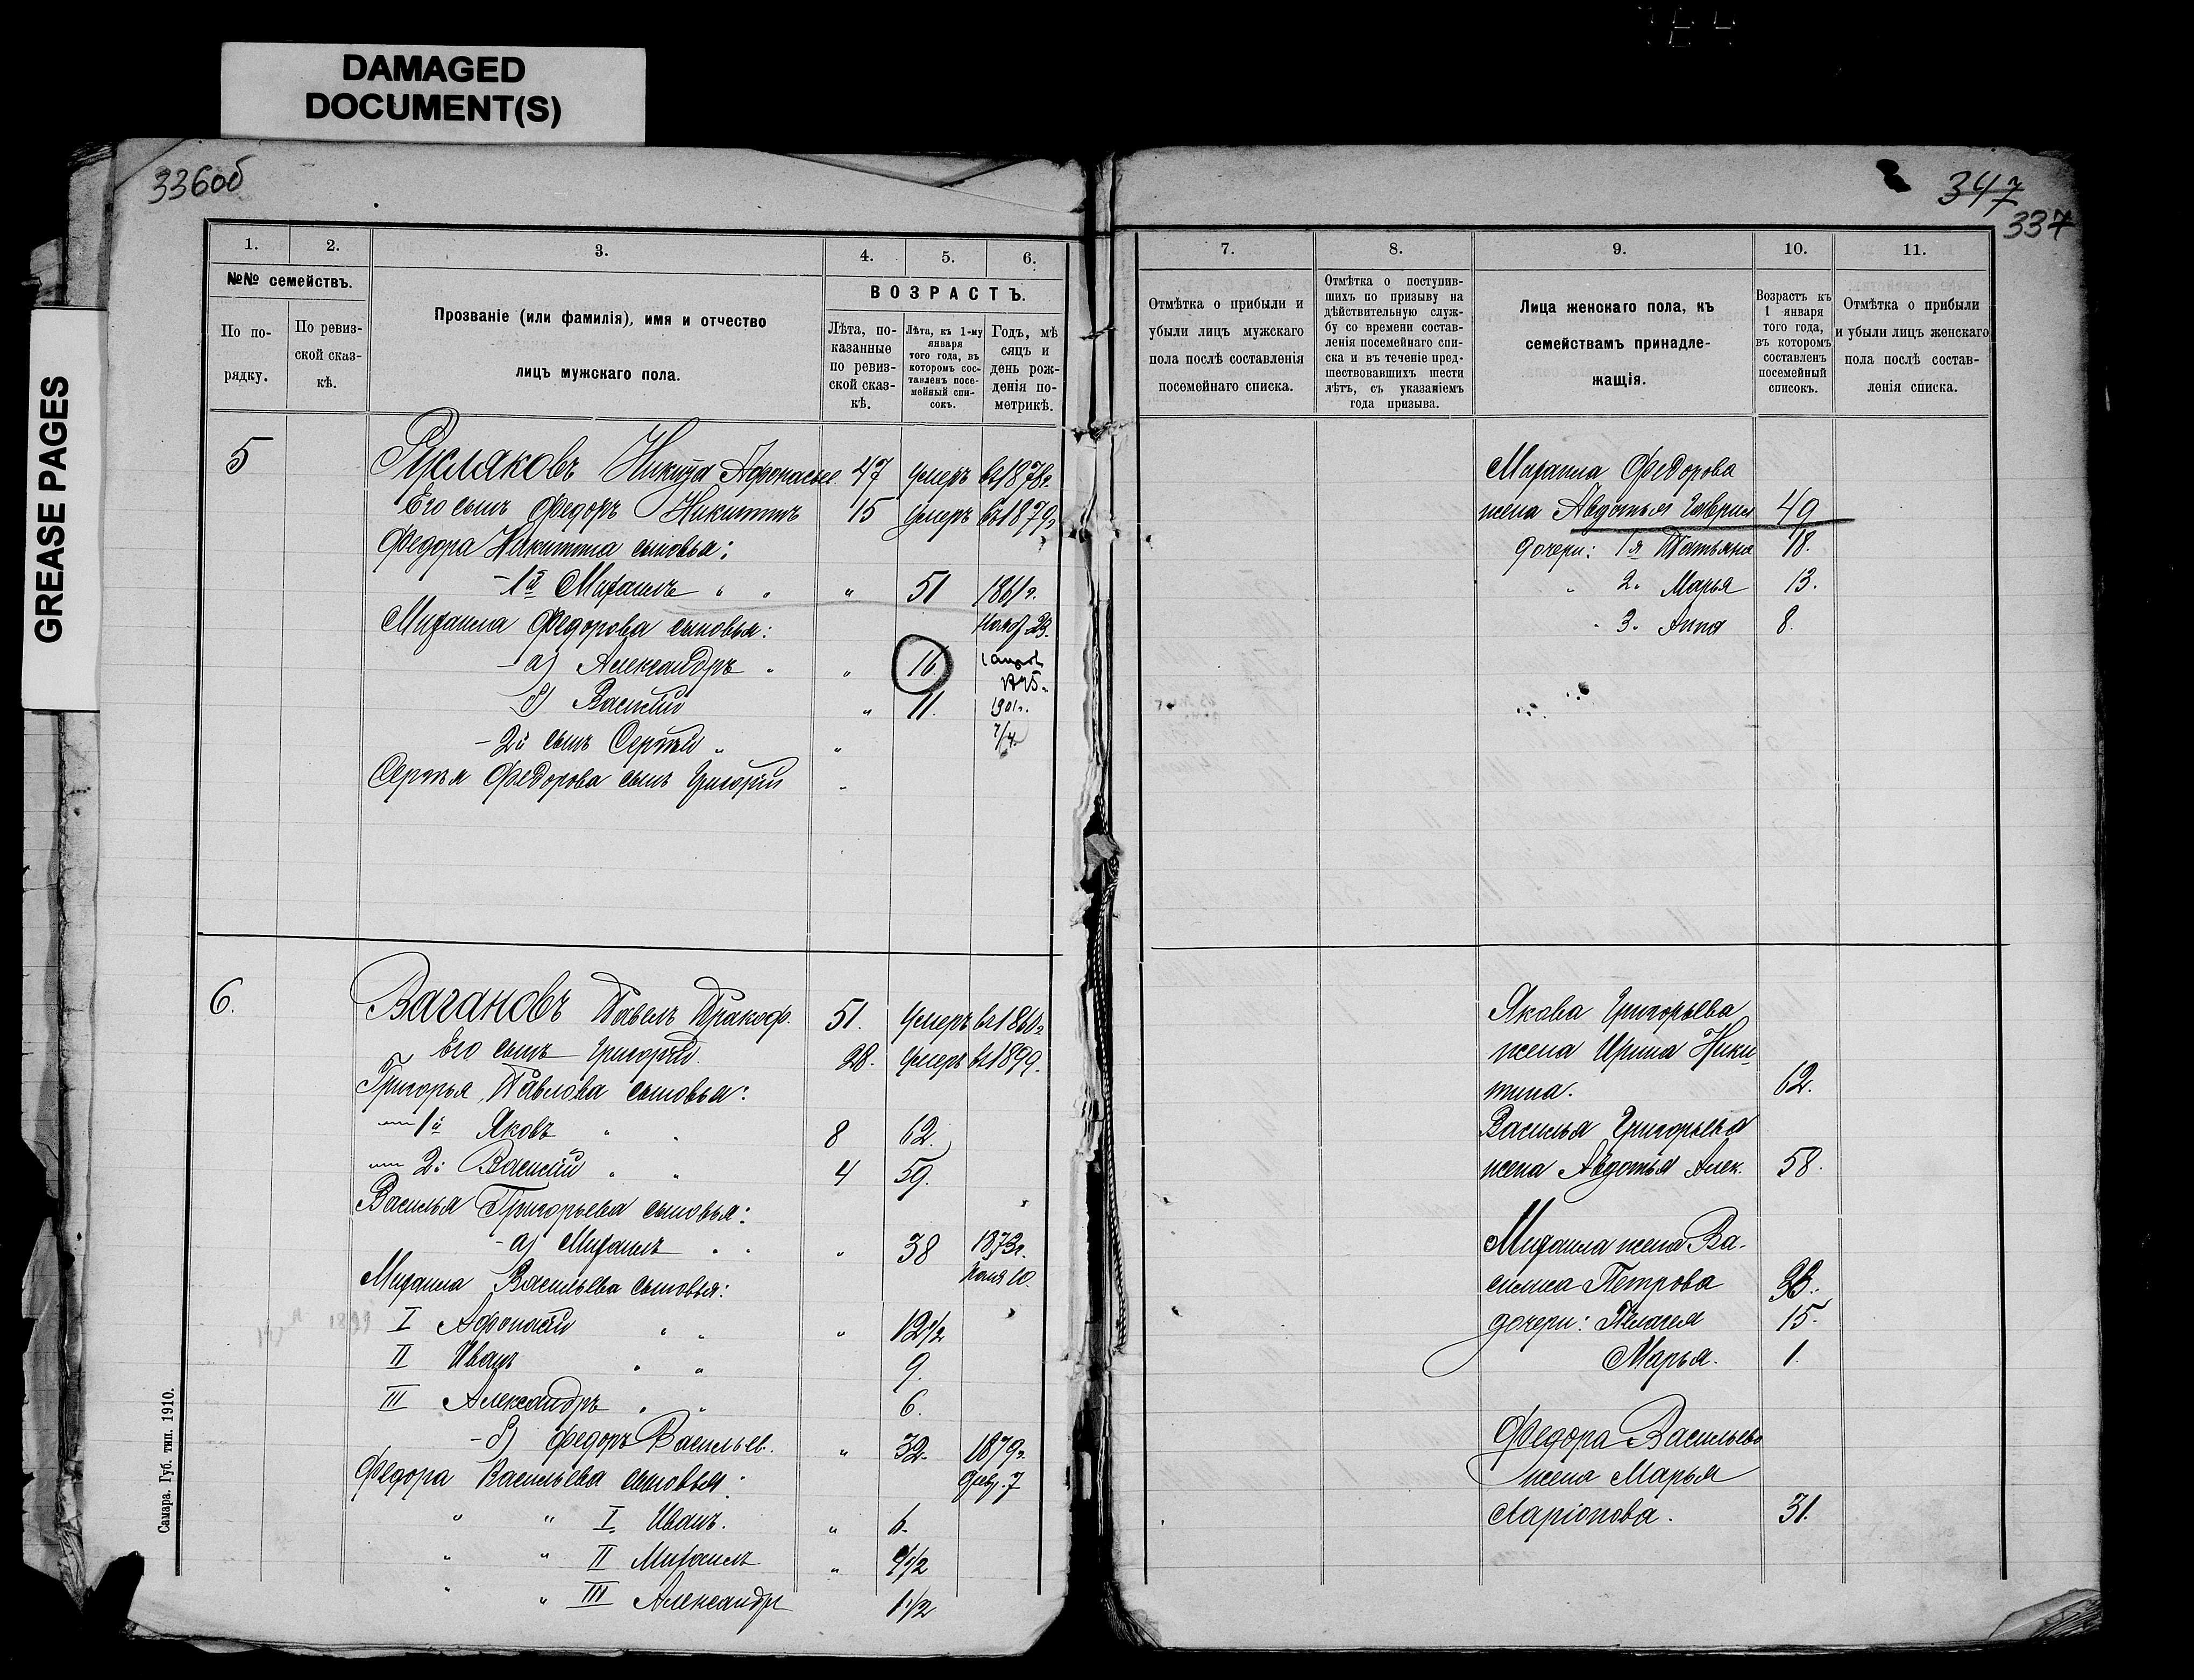 DAMAGED
DOCUMENT(S)
GREASE PAGES
336об
347
337
1.
2.
3.
4.
5.
6.
№№ семействъ.
По по-
рядку.
По ревиз-
ской сказ-
кѣ.
Прозваніе (или фамилія), имя и отчество
лицъ мужскаго пола.
ВОЗРАСТЪ.
Лѣта, по-
казанные
по ревиз-
ской сказ-
кѣ.
Лѣта, къ 1-му
января
того года, въ
которомъ сос-
тавленъ посе-
мейный спи-
сокъ.
Годъ, мѣ
сяцъ и
день рож-
денія по-
метрикѣ.
7.
8.
9.
10.
11.
Отмѣтка о прибыли и
убыли лицъ мужскаго
пола послѣ составленія
посемейнаго списка.
Отмѣтка о поступив-
шихъ по призыву на
дѣйствительную служ-
бу со времени состав-
ленія посемейнаго спи-
ска и въ теченіе пред-
шествовавшихъ шести
лѣтъ, съ указаніемъ
года призыва.
Лица женскаго пола, къ
семействамъ принадле-
жащія.
Возрастъ къ
1 января
того года,
въ которомъ
составленъ
посемейный
списокъ.
Отмѣтка о прибыли
и убыли лицъ женскаго
пола послѣ состав-
ленія списка.
5 Никита 47 умеръ въ 1878г.
Его сынъ Федоръ Никитинъ 15 умеръ въ 1879г
Федора Никитина сыновья:
- 1й Михаилъ " " " 51 1861г.
Михаила Федорова сыновья: Нояб 23.
- а) Александръ " " 16.
- б) Василій " 11. 1901г.
- 2й сынъ Сергѣй " "
Сергѣя Федорова сынъ Григорій "
Михаила Федорова
жена Авдотья Гаврил 49
дочери: 1я Татьяна 18.
" 2. Марья 13.
" 3. Анна 8.
6. Вагановъ Павелъ Пракоф. 51. Умеръ въ 1860г
Его сынъ Григорій. 28. Умеръ въ 1899.
Григорья Павлова сыновья:
1й Яковъ " " 8 62.
2й Василій " " 4 59.
Василья Григорьева сыновья:
- а) Михаилъ " " " 38 1873г.
Михаила Васильева сыновья: 10.
I Афонасій " " " 12 1/2
1899
II Иванъ " " 9.
III Александръ " " 6.
- б) Федоръ Васильев. " 32. 1879г.
Федора Васильева сыновья: Февр. 7
" " I Иванъ. " 6.
" " II Михаилъ "
" III Александръ 1 1/2
Якова Григорьева
жена Ирина Ники
тина. 62.
Василья Григорьева
жена Авдотья Алек. 58.
Михаила жена Ва-
силиса Петрова
дочери: Пелагея 15.
Марья. 1.
Федора Васильева
жена Марья
Ларіонова. 31.
Самара. Губ. тип. 1910.